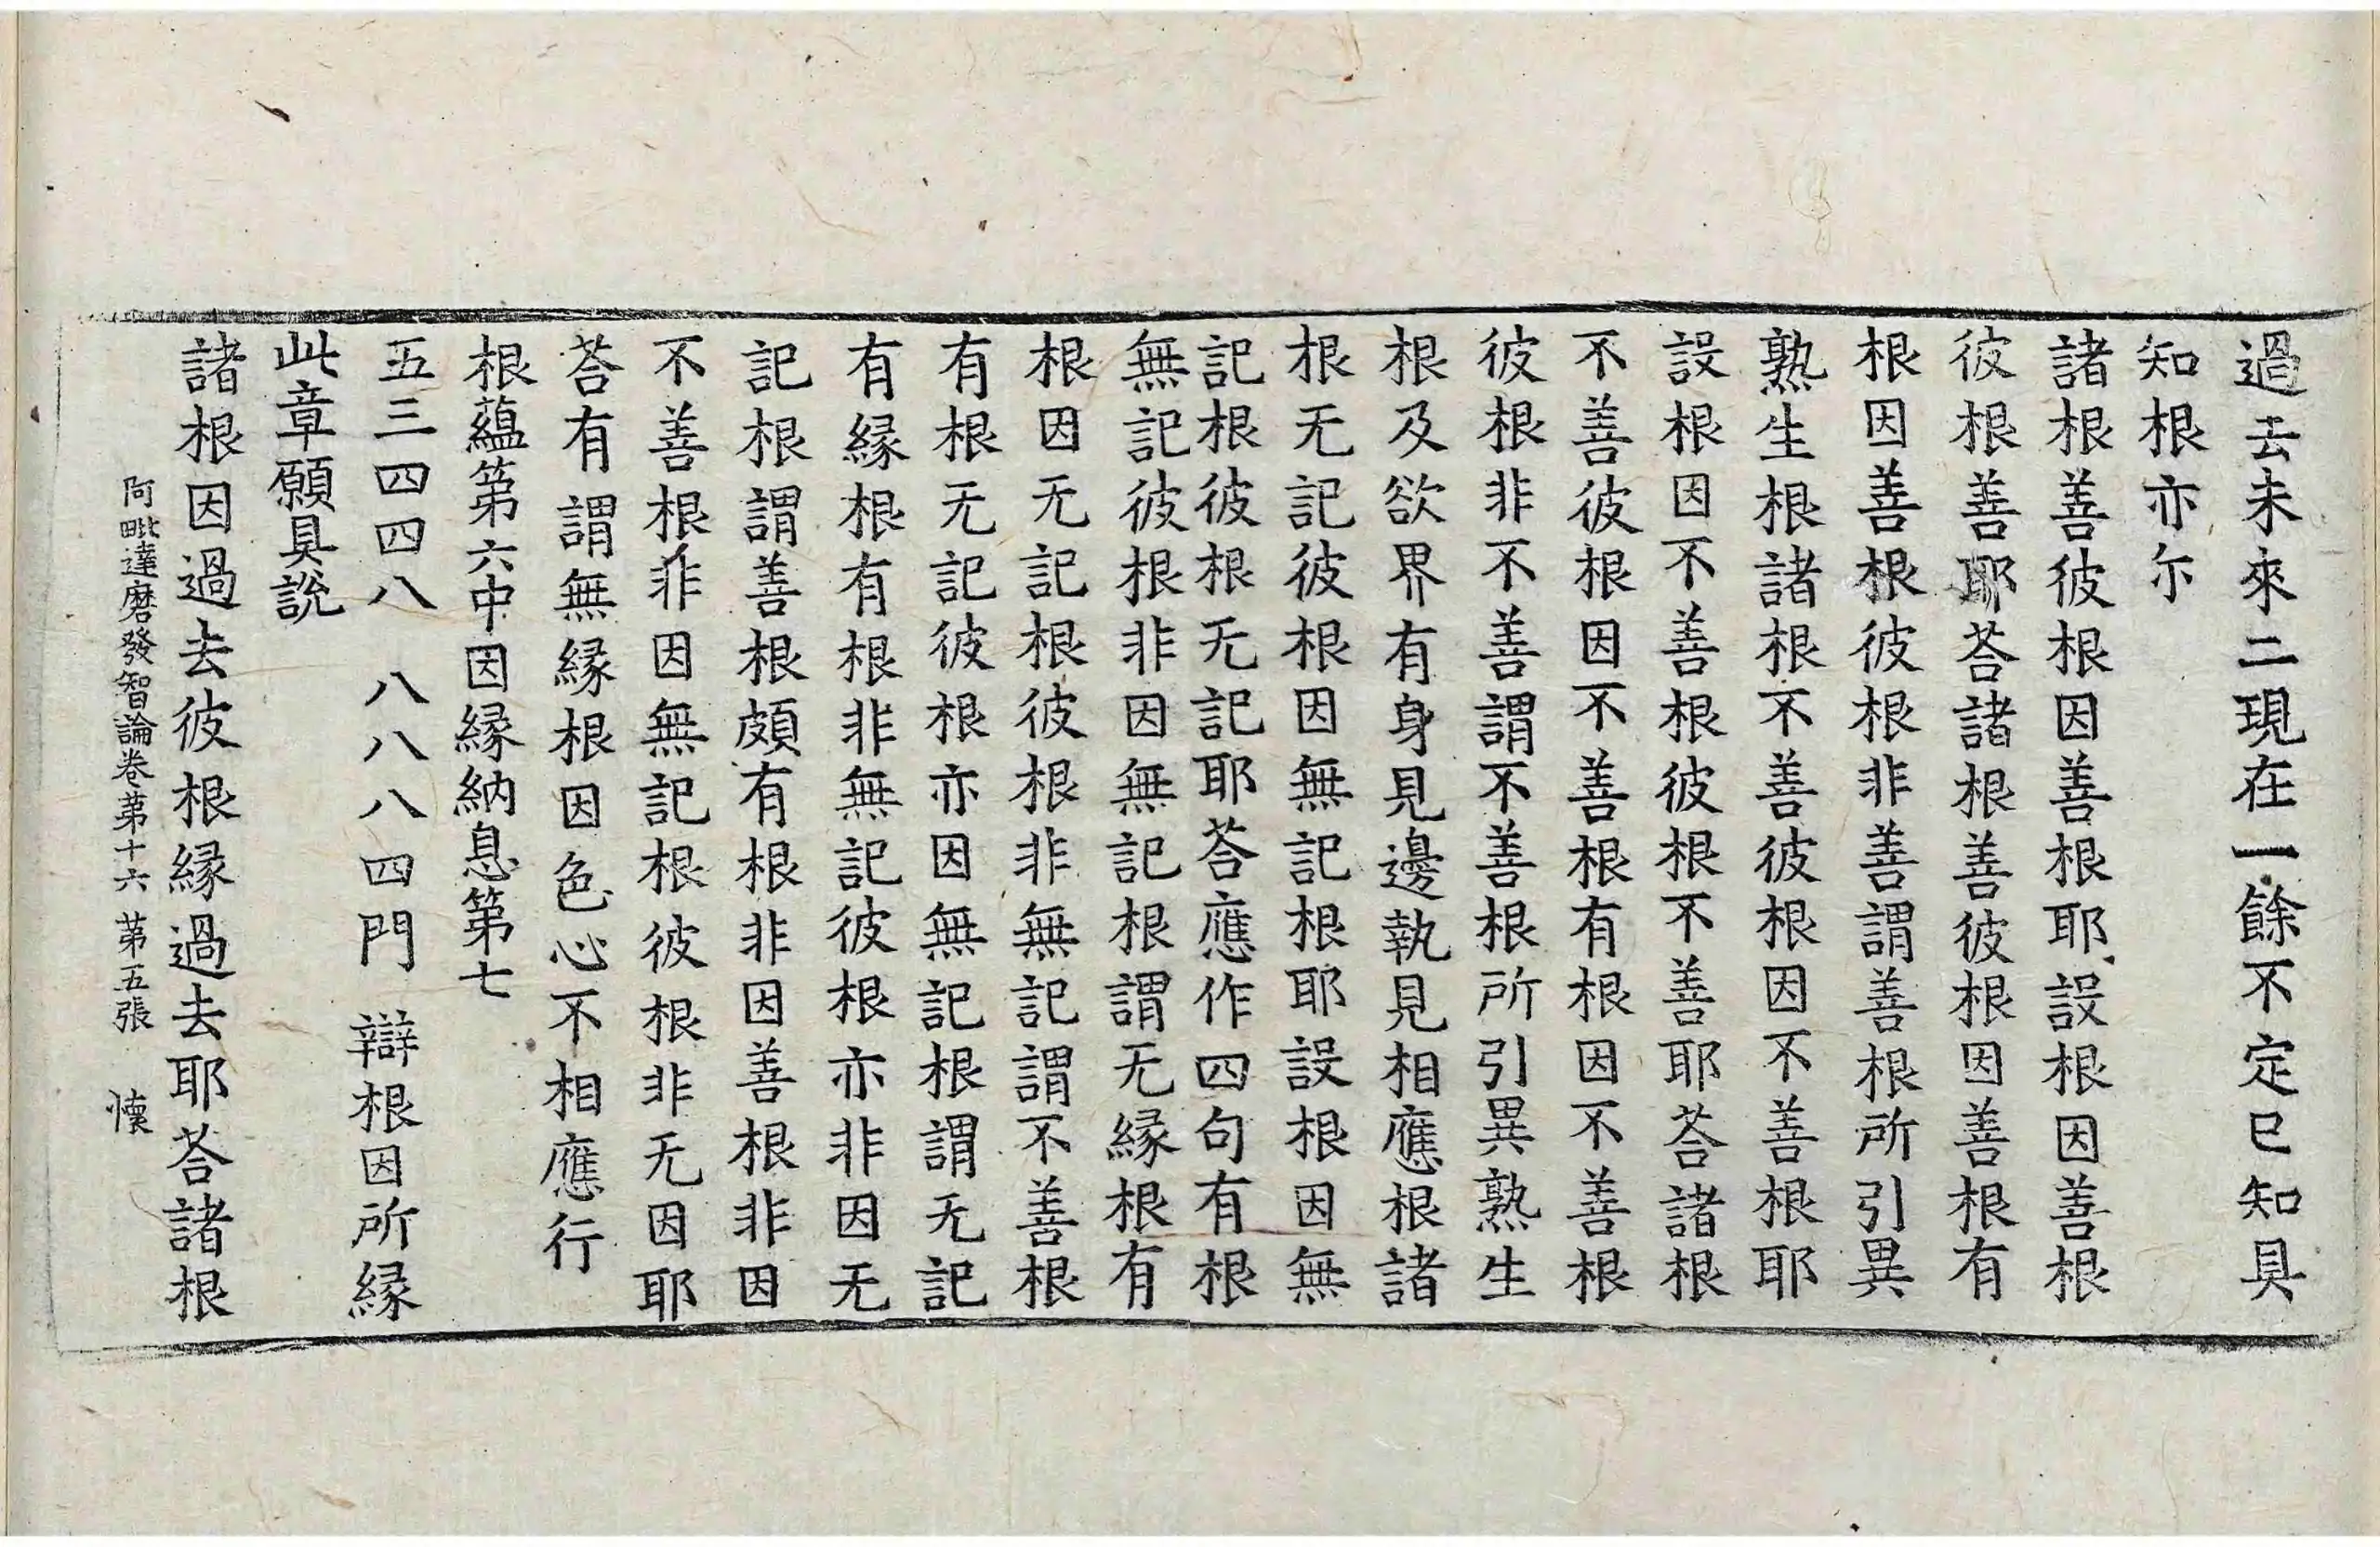 過去未來二現在一餘不定已知具
知根亦尓
諸根善彼根因善根耶設根因善根
彼根善耶荅諸根善彼根因善根有
根因善根彼根非善謂善根所引異
熟生根諸根不善彼根因不善根耶
設根因不善根彼根不善耶荅諸根
不善彼根因不善根有根因不善根
彼根非不善謂不善根所引異熟生
根及欲界有身見邊執見相應根諸
根无記彼根因無記根耶設根因無
記根彼根无記耶荅應作四句有根
無記彼根非因無記根謂无緣根有
根因无記根彼根非無記謂不善根
有根无記彼根亦因無記根謂无記
有緣根有根非無記彼根亦非因无
記根謂善根頗有根非因善根非因
不善根非因無記根彼根非无因耶
荅有謂無緣根因色心不相應行
根蘊第六中因緣納息第七
五三四四八　八八八四門　辯根因所緣
此章願具說
諸根因過去彼根緣過去耶荅諸根
阿毗達磨發智論卷第十六　第五張　懷